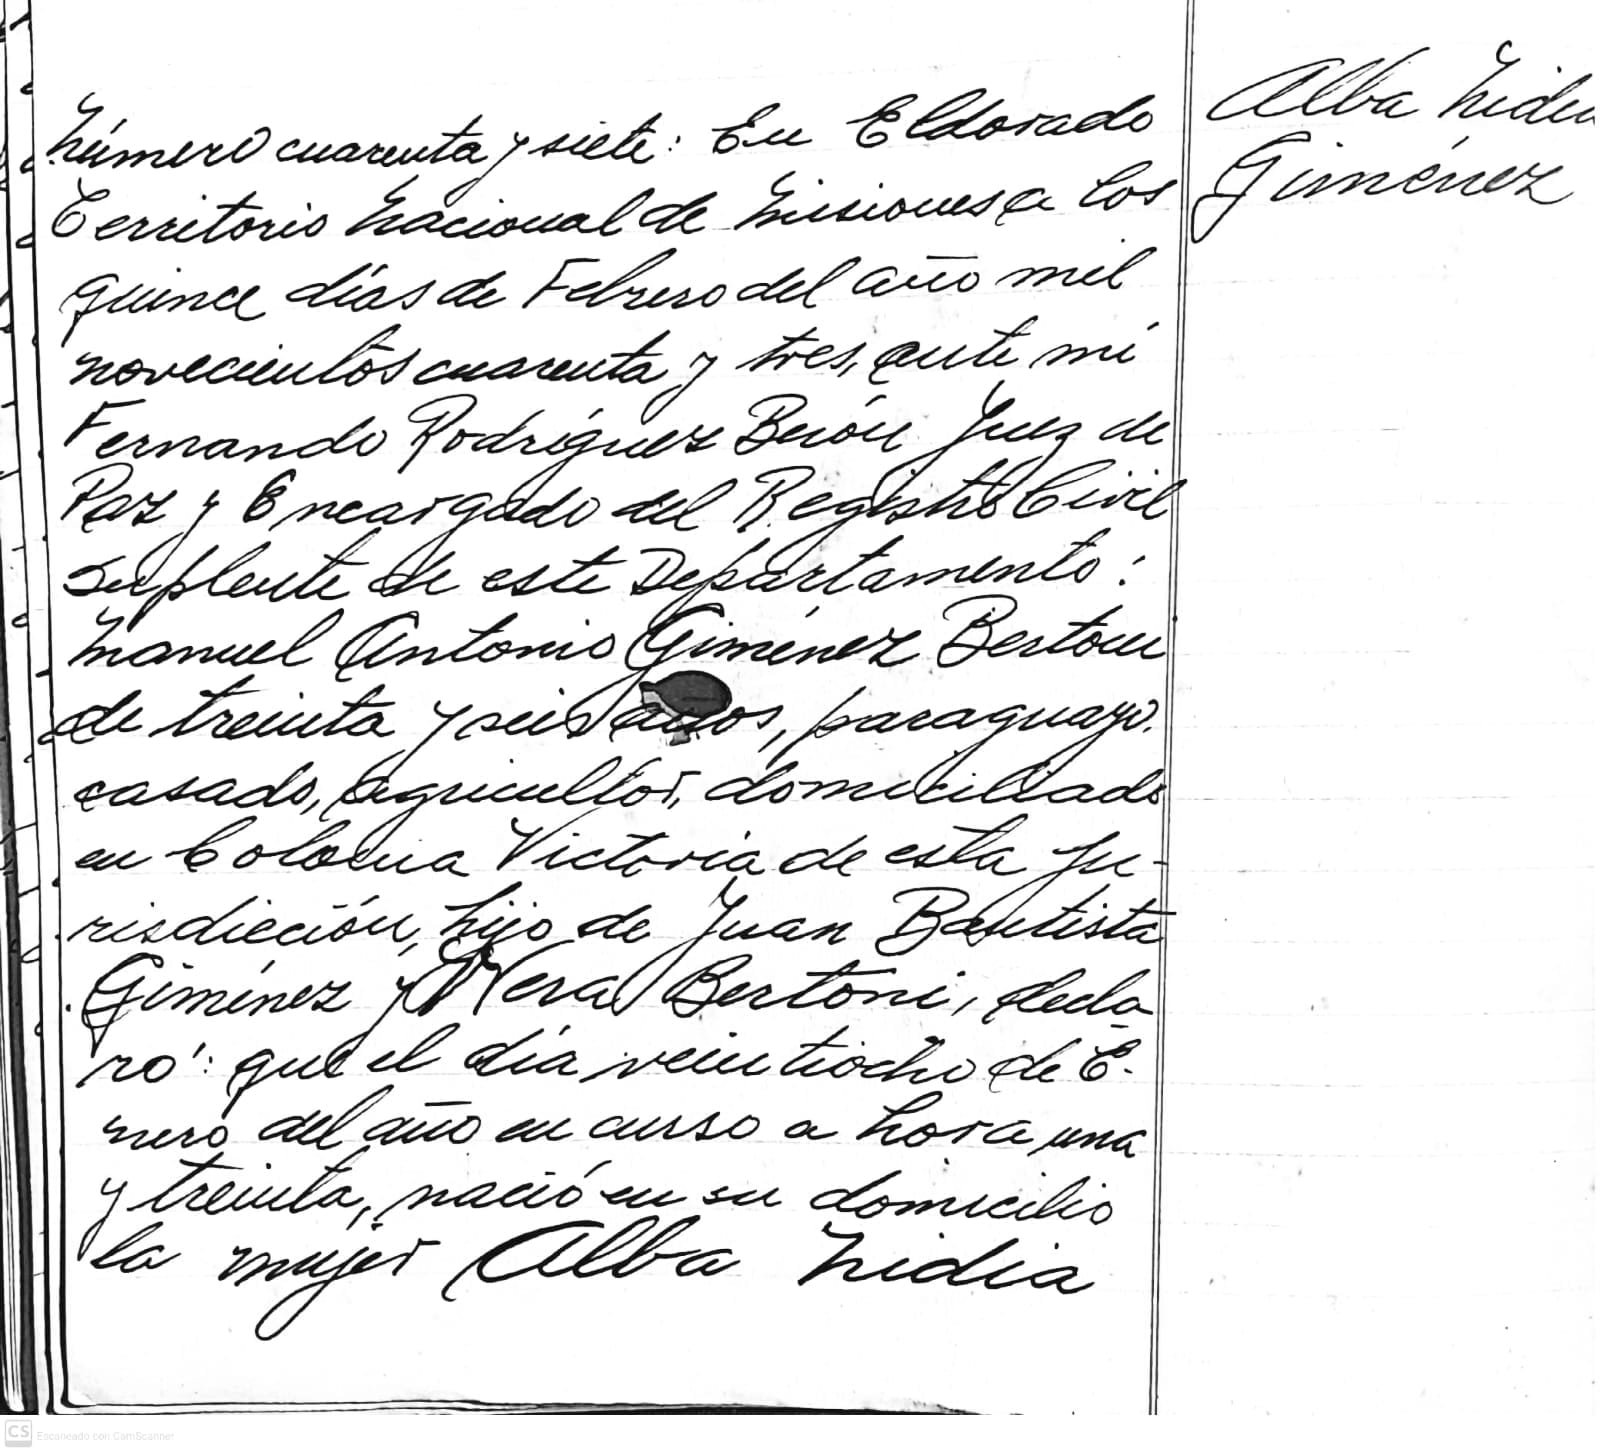 Número cuarenta y siete: En Eldorado
Territorio Nacional de Misiones a los
quince días de Febrero del año mil
novecientos cuarenta y tres, ante mí
Fernando Rodríguez Berón Juez de
Paz y Encargado del Registro Civil
Suplente de este Departamento:
Manuel Antonio Giménez Bertoni
de treinta y seis años, paraguayo.
casado, agricultor, domiciliado
en Colonia Victoria de esta Ju-
risdicción, hijo de Juan Bautista
Giménez y Vera Bertoni, decla
ró: que el día veintiocho de E-
nero del año en curso a hora una
y treinta, nació en su domicilio
la mujer Alba Nidia
Alba Nidia
Giménez
CS Escaneado con CamScanner